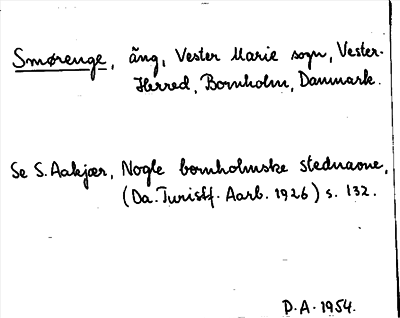 Smørenge, äng, Vester Marie sogn, Vester-
Herred, Bornholm, Danmark.
Se S. Aakjær, Nogle bornholmske stednavne,
(Da. Turistf. Aarb. 1926) s. 132.
D.A. 1954.